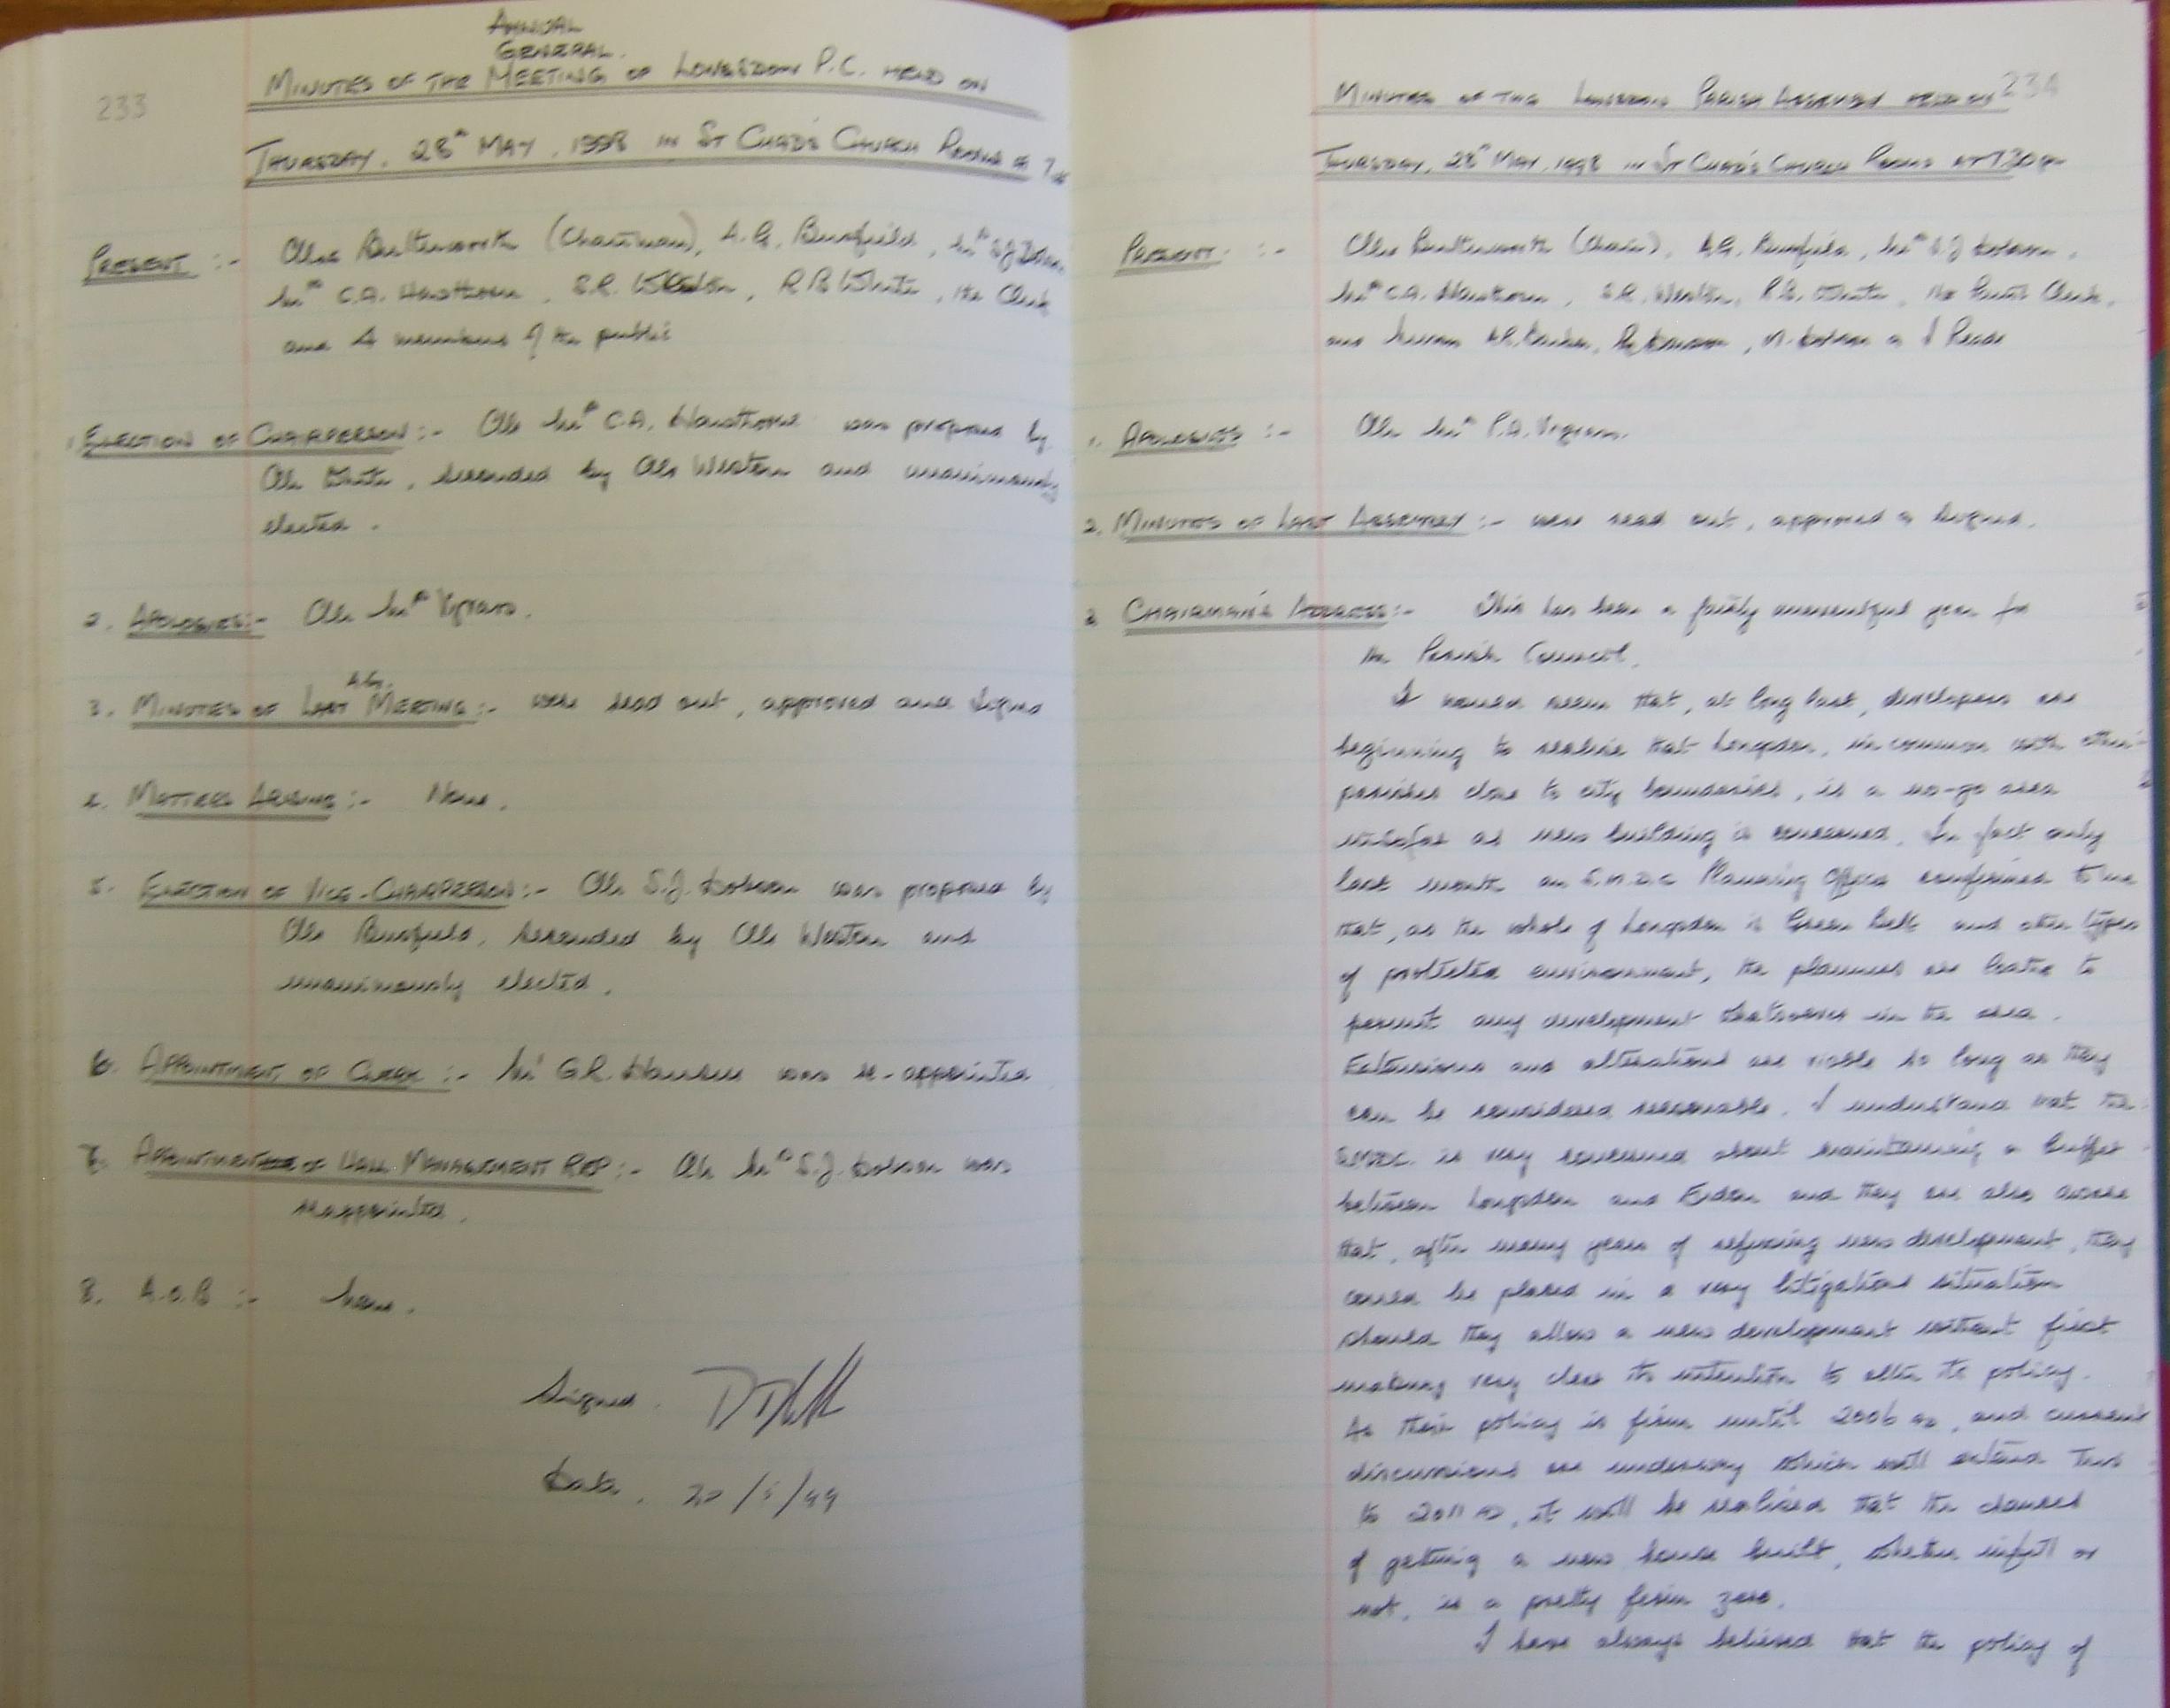 233
ANNUAL
GENERAL.
MINUTES OF THE MEETING OF LONGSDON P.C. HELD ON
THURSDAY, 28th MAY, 1998 IN ST CHAD'S CHURCH ROOMS AT 7
PRESENT :- Cllrs Butterworth (Chairman), A.G. Busfield, Mrs S J Dobson
Mrs C.A. Hawthorne, S.R. Weston, R B White, the Clerk
and 4 members of the public
1. ELECTION OF CHAIRPERSON :- Cllr Mrs C.A. Hawthorne was proposed by
Cllr White, seconded by Cllr Weston and unanimously
elected.
2. APOLOGIES :- Cllr Mrs Vigrass.
A.G.
3. MINUTES OF LAST MEETING :- were read out, approved and signed
4. MATTERS ARISING :- None.
5. ELECTION OF VICE-CHAIRPERSON :- Cllr S.J. Dobson was proposed by
Cllr Busfield, seconded by Cllr Weston and
unanimously elected.
6. APPOINTMENT OF CLERK :- Mr G.R. was re-appointed
7. APPOINTMENT OF HALL MANAGEMENT REP :- Cllr Mrs S.J. Dobson was
reappointed.
8. A.O.B :- None.
Signed.
Date. 20/5/99
234
MINUTES OF THE LONGSDON PARISH ASSEMBLY HELD ON
THURSDAY, 28th MAY, 1998 IN ST CHAD'S CHURCH ROOMS AT 7.30pm
PRESENT :- Cllrs Butterworth (Chair), A.G. Busfield, Mrs S J Dobson,
Mrs C.A. Hawthorne, S.R. Weston, R.B. White, the Parish Clerk,
and Messrs , , N. Dobson &
1. APOLOGIES :- Cllr Mrs P.A. Vigrass.
2. MINUTES OF LAST ASSEMBLY :- were read out, approved & signed.
3 CHAIRMAN'S ADDRESS :- This has been a fairly uneventful year for
the Parish Council.
It would seem that, at long last, developers are
beginning to realise that Longsdon, in common with other
parishes close to city boundaries, is a no-go area
insofar as new building is concerned. In fact only
last month an S.M.D.C Planning Officer confirmed to me
that, as the whole of Longsdon is Green Belt and other types
of protected environment, the planners are loathe to
permit any development whatsoever in the area.
Extensions and alterations are viable so long as they
can be considered reasonable. I understand that the
SMDC. is very concerned about maintaining a buffer
between Longsdon and Endon and they are also aware
that, after many years of refusing new development, they
could be placed in a very litigatious situation
should they allow a new development without first
making very clear the intention to alter the policy.
As their policy is firm until 2006 AD, and current
discussions are underway which will extend this
to 2011 AD, it will be realised that the chances
of getting a new house built, whether infill or
not, is a pretty firm zero.
I have always believed that the policy of